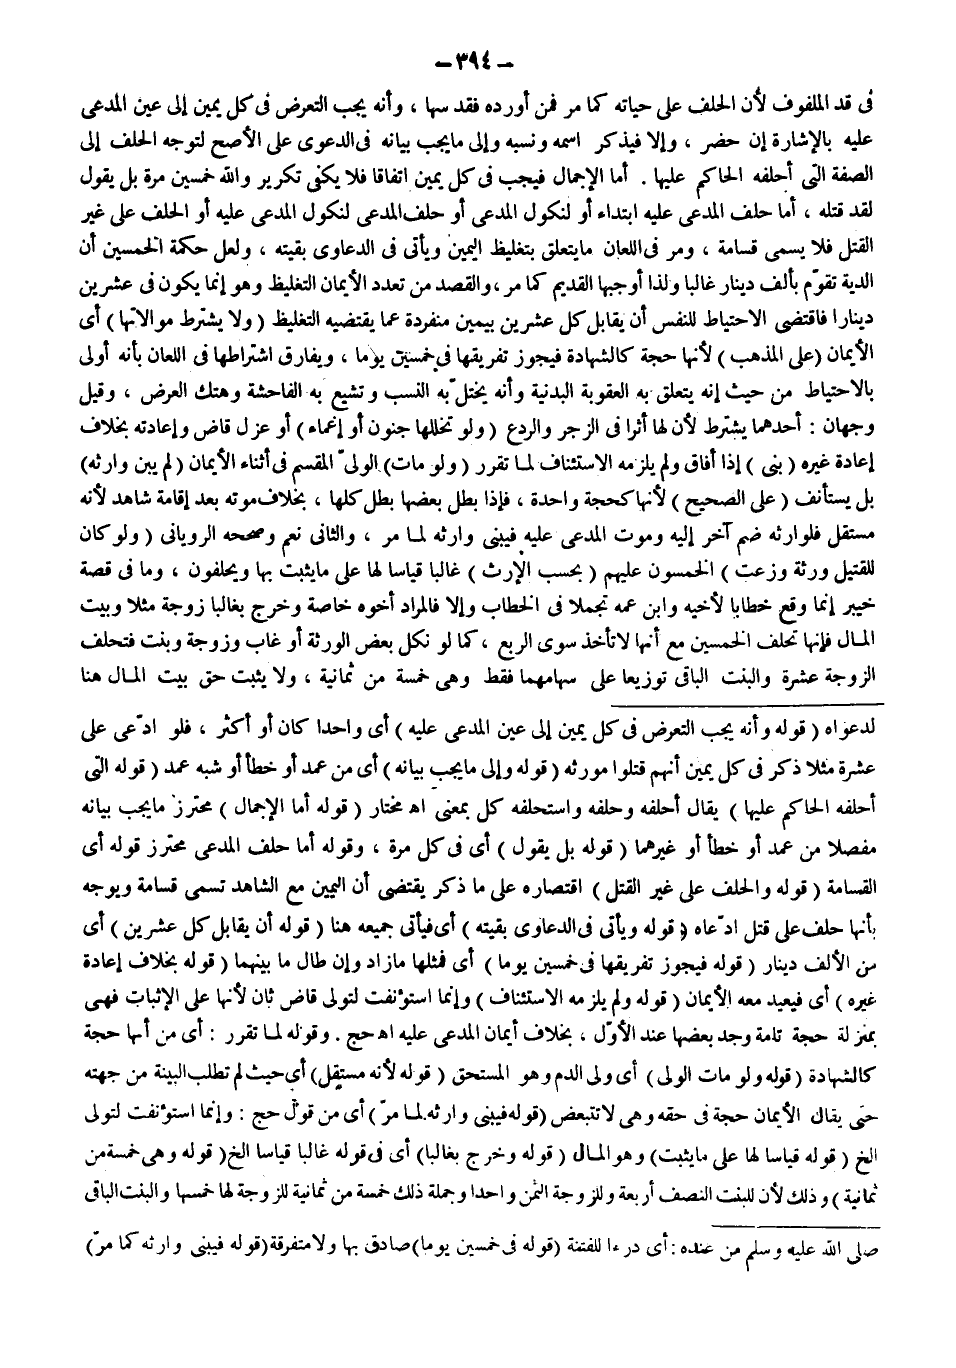 – ٣٩٤ –
فى قد الملفوف لأن الحلف على حياته كما مر فمن أورده فقد سها ، وأنه يجب التعرض فى كل يمين إلى عين المدعى
عليه بالإشارة إن حضر ، وإلا فيذكر اسمه ونسبه وإلى مايجب بيانه فى الدعوى على الأصح لتوجه الحلف إلى
الصفة التى أحلفه الحاكم عليها . أما الإجمال فيجب فى كل يمين اتفاقا فلا يكفى تكرير والله خمسين مرة بل يقول
لقد قتله ، أما حلف المدعى عليه ابتداء أو لنكول المدعى أو حلف المدعى لنكول المدعى عليه أو الحلف على غير
القتل فلا يسمى قسامة ، ومر فى اللعان مايتعلق بتغليظ اليمين ويأتى فى الدعاوى بقيته ، ولعل حكمة الخمسين أن
الدية تقوّم بألف دينار غالبا ولذا أوجبها القديم كما مر ، والقصد من تعدد الأيمان التغليظ وهو إنما يكون فى عشرين
دينارا فاقتضى الاحتياط للنفس أن يقابل كل عشرين بيمين منفردة عما يقتضيه التغليظ ( ولا يشترط موالاتها ) أى
الأيمان (على المذهب ) لأنها حجة كالشهادة فيجوز تفريقها فى خمسين يوما ، ويفارق اشتراطها فى اللعان بأنه أولى
بالاحتياط من حيث إنه يتعلق به العقوبة البدنية وأنه يختلّ به النسب وتشيع به الفاحشة وهتك العرض ، وقيل
وجهان : أحدهما يشترط لأن لها أثرا فى الزجر والردع ( ولو تخللها جنون أو إغماء ) أو عزل قاض وإعادته بخلاف
إعادة غيره ( بنى ) إذا أفاق ولم يلزمه الاستئناف لما تقرر ( ولو مات) الولىّ المقسم فى أثناء الأيمان ( لم يبن وارثه)
بل يستأنف ( على الصحيح ) لأنها كحجة واحدة ، فإذا بطل بعضها بطل كلها ، بخلاف موته بعد إقامة شاهد لأنه
مستقل فلوارثه ضم آخر إليه وموت المدعى عليه فيبنى وارثه لما مر ، والثانى نعم وصححه الرويانى ( ولو كان
للقتيل ورثة وزعت ) الخمسون عليهم ( بحسب الإرث ) غالبا قياسا لها على مايثبت بها ويحلفون ، وما فى قصة
خيبر إنما وقع خطابا لأخيه وابن عمه تجملا فى الخطاب وإلا فالمراد أخوه خاصة وخرج بغالبا زوجة مثلا وبيت
المال فإنها تحلف الخمسين مع أنها لاتأخذ سوى الربع ، كما لو نكل بعض الورثة أو غاب وزوجة وبنت فتحلف
الزوجة عشرة والبنت الباقى توزيعا على سهامهما فقط وهى خمسة من ثمانية ، ولا يثبت حق بيت المال هنا
لدعواه ( قوله وأنه يجب التعرض فى كل يمين إلى عين المدعى عليه ) أى واحدا كان أو أكثر ، فلو ادّعى على
عشرة مثلا ذكر فى كل يمين أنهم قتلوا مورثه ( قوله وإلى مايجب بيانه ) أى من عمد أو خطأ أو شبه عمد ( قوله التى
أحلفه الحاكم عليها ) يقال أحلفه وحلفه واستحلفه كل بمعنى اه مختار ( قوله أما الإجمال ) محترز مايجب بيانه
مفصلا من عمد أو خطأ أو غيرهما ( قوله بل يقول ) أى فى كل مرة ، وقوله أما حلف المدعى محترز قوله أى
القسامة ( قوله والحلف على غير القتل ) اقتصاره على ما ذكر يقتضى أن اليمين مع الشاهد تسمى قسامة ويوجه
بأنها حلف على قتل ادّعاه ( قوله ويأتى فى الدعاوى بقيته ) أى فيأتى جميعه هنا ( قوله أن يقابل كل عشرين ) أى
من الألف دينار ( قوله فيجوز تفريقها فى خمسين يوما ) أى فمثلها مازاد وإن طال ما بينهما ( قوله بخلاف إعادة
غيره ) أى فيعيد معه الأيمان ( قوله ولم يلزمه الاستئناف ) وإنما استؤنفت لتولى قاض ثان لأنها على الإثبات فهى
بمنزلة حجة تامة وجد بعضها عند الأوّل ، بخلاف أيمان المدعى عليه اه حج . وقوله لما تقرر : أى من أنها حجة
كالشهادة ( قوله ولو مات الولى ) أى ولى الدم وهو المستحق ( قوله لأنه مستقل ) أى حيث لم تطلب البينة من جهته
حتى يقال الأيمان حجة فى حقه وهى لا تتبعض (قوله فيبنى وارثه لما مرّ ) أى من قول حج : وإنما استؤنفت لتولى
الخ ( قوله قياسا لها على مايثبت) وهو المال ( قوله وخرج بغالبا) أى فى قوله غالبا قياسا الخ( قوله وهى خمسة من
ثمانية ) وذلك لأن للبنت النصف أربعة وللزوجة الثمن واحدا وجملة ذلك خمسة من ثمانية للزوجة لها خمسها والبنت الباقى
صلى الله عليه وسلم من عنده : أى درءا للفتنة (قوله فى خمسين يوما) صادق بها ولا متفرقة (قوله فيبنى وارثه كما مرّ)